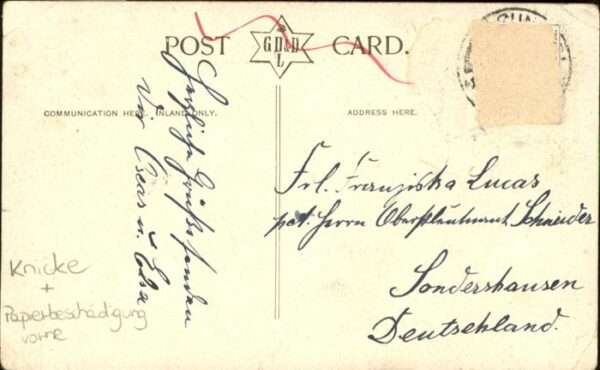 POST CARD.
G D & D
L
COMMUNICATION HERE, INLAND ONLY.
ADDRESS HERE.
Herzliche Grüße senden
Oscar u. Elsa
Frl. Franziska Lucas
Herrn Oberstleutnant Schneider
Sondershausen
Deutschland.
Knicke
+
Papierbeschädigung
vorne